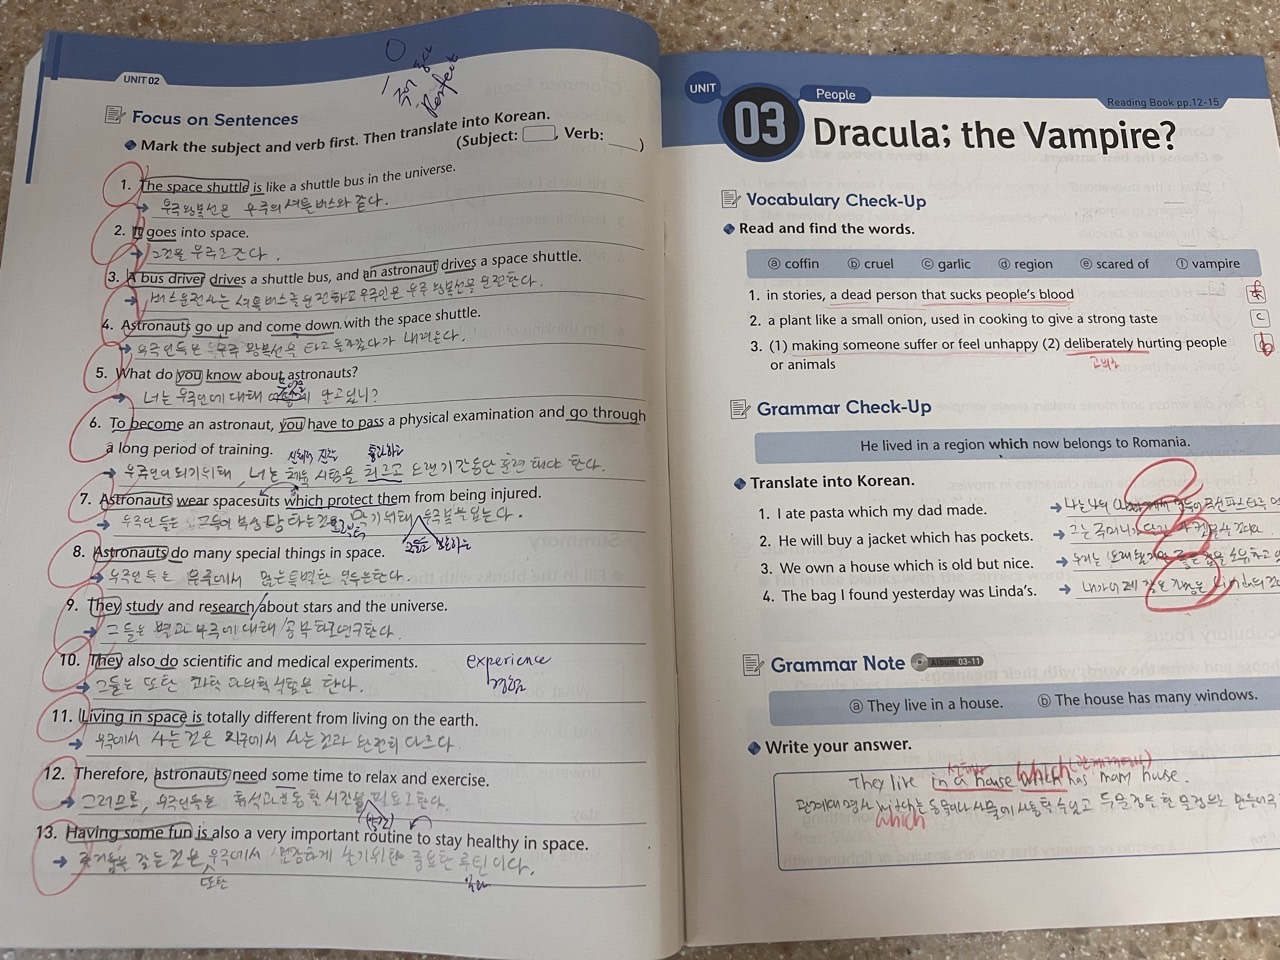 UNIT 02
Perfect
Focus on Sentences
Mark the subject and verb first. Then translate into Korean.
(Subject: , Verb: )
1. The space shuttle is like a shuttle bus in the universe.
→ 우주왕복선은 우주의 셔틀버스와 같다.
2. It goes into space.
→ 그것은 우주로 간다.
3. A bus driver drives a shuttle bus, and an astronaut drives a space shuttle.
→ 버스운전사는 셔틀버스를 운전하고 우주인은 우주 왕복선을 운전한다.
4. Astronauts go up and come down with the space shuttle.
→ 우주인들은 우주 왕복선을 타고 올라갔다가 내려온다.
5. What do you know about astronauts?
→ 너는 우주인에 대해 알고있니?
6. To become an astronaut, you have to pass a physical examination and go through
a long period of training.
→ 우주인이 되기위해, 너는 시험을 오랜기간동안 훈련 해야 한다.
7. Astronauts wear spacesuits which protect them from being injured.
→ 우주인들은 그들이 부상당하는 위해 우주복을 입는다.
8. Astronauts do many special things in space.
→ 우주인들은 우주에서 많은 특별한 한다.
9. They study and research about stars and the universe.
→ 그들은 별과 우주에 대해 공부하고 연구한다.
10. They also do scientific and medical experiments.
experience
경험
→ 그들은 또한 한다.
11. Living in space is totally different from living on the earth.
→ 우주에서 사는것은 지구에서 사는것과 완전히 다르다.
12. Therefore, astronauts need some time to relax and exercise.
→ 그러므로, 우주인들은 휴식과 운동할 시간을 필요로한다.
13. Having some fun is also a very important routine to stay healthy in space.
→ 즐거움을 갖는것은 우주에서 건강하게 위한 중요한 루틴이다.
또한
UNIT
03
People
Reading Book pp.12-15
Dracula; the Vampire?
Vocabulary Check-Up
Read and find the words.
ⓐ coffin ⓑ cruel ⓒ garlic ⓓ region ⓔ scared of ⓕ vampire
1. in stories, a dead person that sucks people's blood f
2. a plant like a small onion, used in cooking to give a strong taste c
3. (1) making someone suffer or feel unhappy (2) deliberately hurting people b
or animals
고의로
Grammar Check-Up
He lived in a region which now belongs to Romania.
Translate into Korean.
1. I ate pasta which my dad made.
→ 나는 나의
2. He will buy a jacket which has pockets.
→ 그는 주머니가
3. We own a house which is old but nice.
→
4. The bag I found yesterday was Linda's.
→ 내가 어제
Grammar Note Album 03-11
ⓐ They live in a house. ⓑ The house has many windows.
Write your answer.
They live in a house which has many house.
관계대명사 which는 동물이나 사물에 사용할 수 있고 두문장을 한 문장으로
which